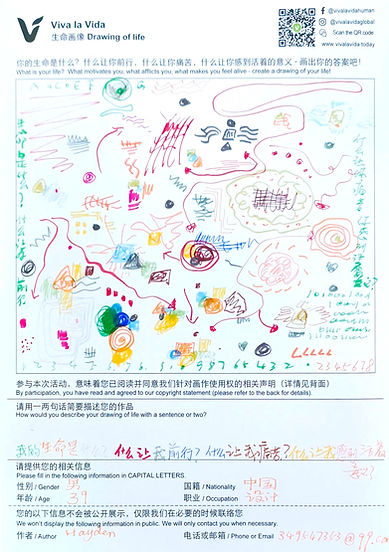 Viva la Vida
生命画像 Drawing of life
@vivalavidahuman
@vivalavidaglobal
Scan the QR code
www.vivalavida.today
你的生命是什么？什么让你前行、什么让你痛苦、什么让你感到活着的意义 - 画出你的答案吧！
What is your life? What motivates you, what afflicts you, what makes you feel alive - create a drawing of your life!
参与本次活动，意味着您已阅读并同意我们针对画作使用权的相关声明（详情见背面）
By participation, you have read and agreed to our copyright statement (please refer to the back for details).
请用一两句话简要描述您的作品
How would you describe your drawing of life with a sentence or two?
我的生命是什么？什么让我前行？什么让我痛苦？什么让我感到活着
意义？
请提供您的相关信息
Please fill in the following information in CAPITAL LETTERS.
性别 / Gender 男 国籍 / Nationality 中国
年龄 / Age 39 职业 / Occupation 设计
您的以下信息不会被公开展示，仅限我们在必要的时候联络您
We won't display the following information in public. We will only contact you when necessary.
作者 / Author Hayden 电话或邮箱 / Phone or Email